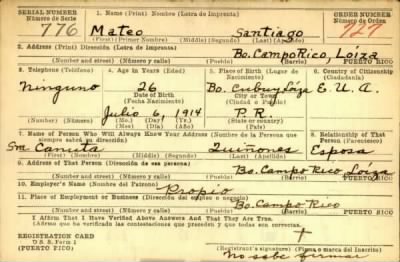 SERIAL NUMBER
Número de Serie
776
1. Name (Print) Nombre (Letra de Imprenta)
Mateo Santiago
(First) (Primer Nombre) (Middle) (Segundo) (Last) (Apellido)
ORDER NUMBER
Número de Orden
727
2. Address (Print) Dirección (Letra de Imprenta)
Bo. Campo Rico, Loíza
(Number and street) (Número y calle) (Pueblo) (Barrio) PUERTO RICO
3. Telephone (Teléfono)
Ninguno
4. Age in Years (Edad)
26
Date of Birth
(Fecha Nacimiento)
Julio 6, 1914
5. Place of Birth (Lugar de Nacimiento)
Bo. Cubuy Loíza
City or Town
(Ciudad o Pueblo)
P. R.
(State or country)
6. Country of Citizenship
(Ciudadanía)
E. U. A.
7. Name of Person Who Will Always Know Your Address (Nombre de la Persona que siempre sabrá su dirección)
Sra Canuta Quiñones
(First) (Primer Nombre) (Middle) (Segundo) (Last) (Apellido)
8. Relationship of That Person (Parentesco)
Esposa
9. Address of That Person (Dirección de esa persona)
Bo. Campo Rico Loíza
(Number and street) (Número y calle) (Pueblo) (Barrio) PUERTO RICO
10. Employer's Name (Nombre del Patrono)
Propio
11. Place of Employment or Business (Dirección del empleo o negocio)
Bo. Campo Rico
(Number and street) (Número y calle) (Pueblo) (Barrio) PUERTO RICO
I Affirm That I Have Verified Above Answers and That They Are True.
(Afirmo que he verificado las contestaciones que preceden y que todas son ciertas)
REGISTRATION CARD
D S S. Form 1
(PUERTO RICO)
+
(Registrant's signature) (Firma o marca del Inscrito)
No sabe firmar